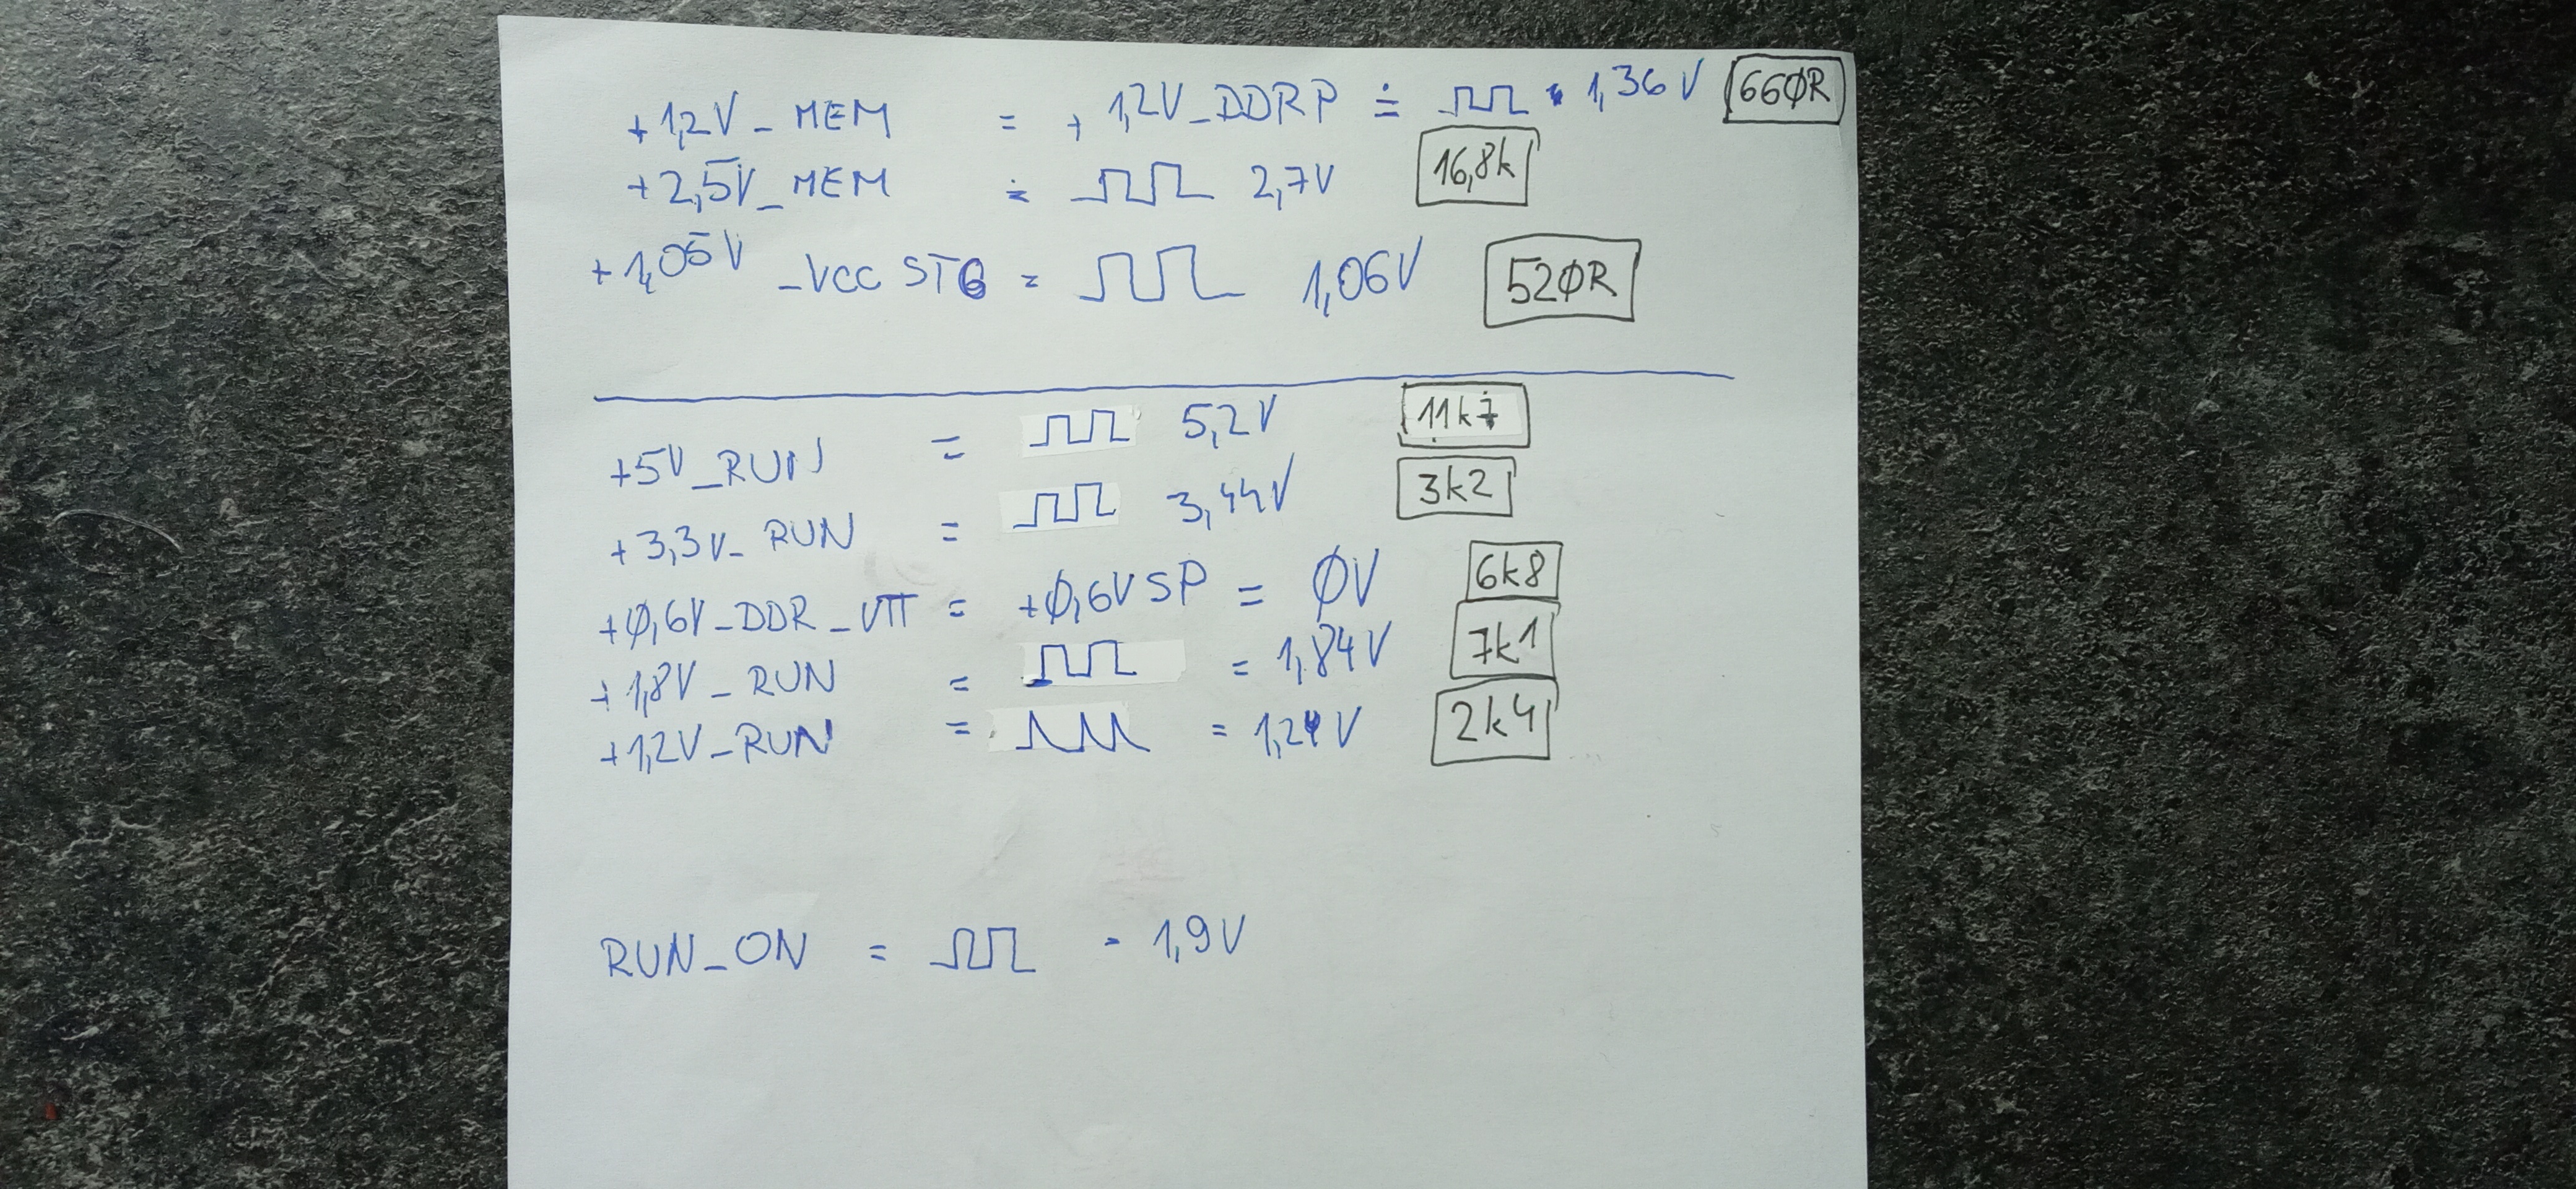 +1,2V_MEM = +1,2V_DDRP ≐ 1,36V 66ØR
+2,5V_MEM ≐ 2,7V 16,8k
+1,05V_VCCSTG = 1,06V 52ØR
+5V_RUN = 5,2V 11k7
+3,3V_RUN = 3,44V 3k2
+Ø,6V_DDR_VTT = +Ø,6VSP = ØV 6k8
+1,8V_RUN = = 1,84V 7k1
+1,2V_RUN = = 1,24V 2k4
RUN_ON = - 1,9V